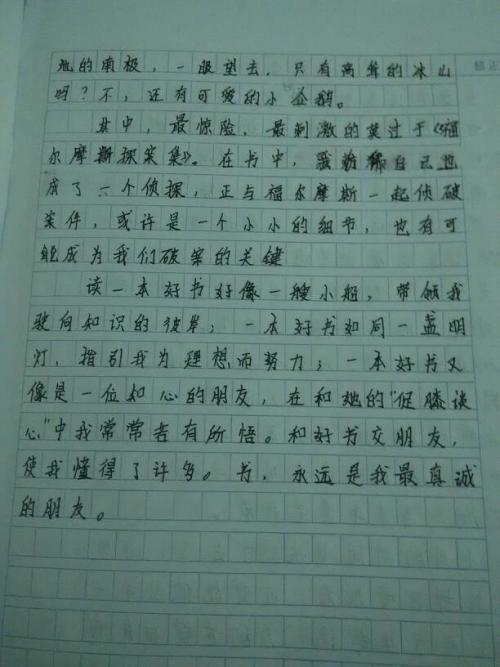 地的南极，一眼望去，只有高耸的冰山
吗？不，还有可爱的小企鹅。
其中，最惊险，最刺激的莫过于《福
尔摩斯探案集》。在书中，我仿佛自己也
成了一个侦探，正与福尔摩斯一起侦破
案件，或许是一个小小的细节，也有可
能成为我们破案的关键
读一本好书好像一艘小船，带领我
驶向知识的彼岸；一本好书如同一盏明
灯，指引我为理想而努力；一本好书又
像是一位知心的朋友，在和她的“促膝谈
心”中我常常若有所悟。和好书交朋友，
使我懂得了许多。书，永远是我最真诚
的朋友。